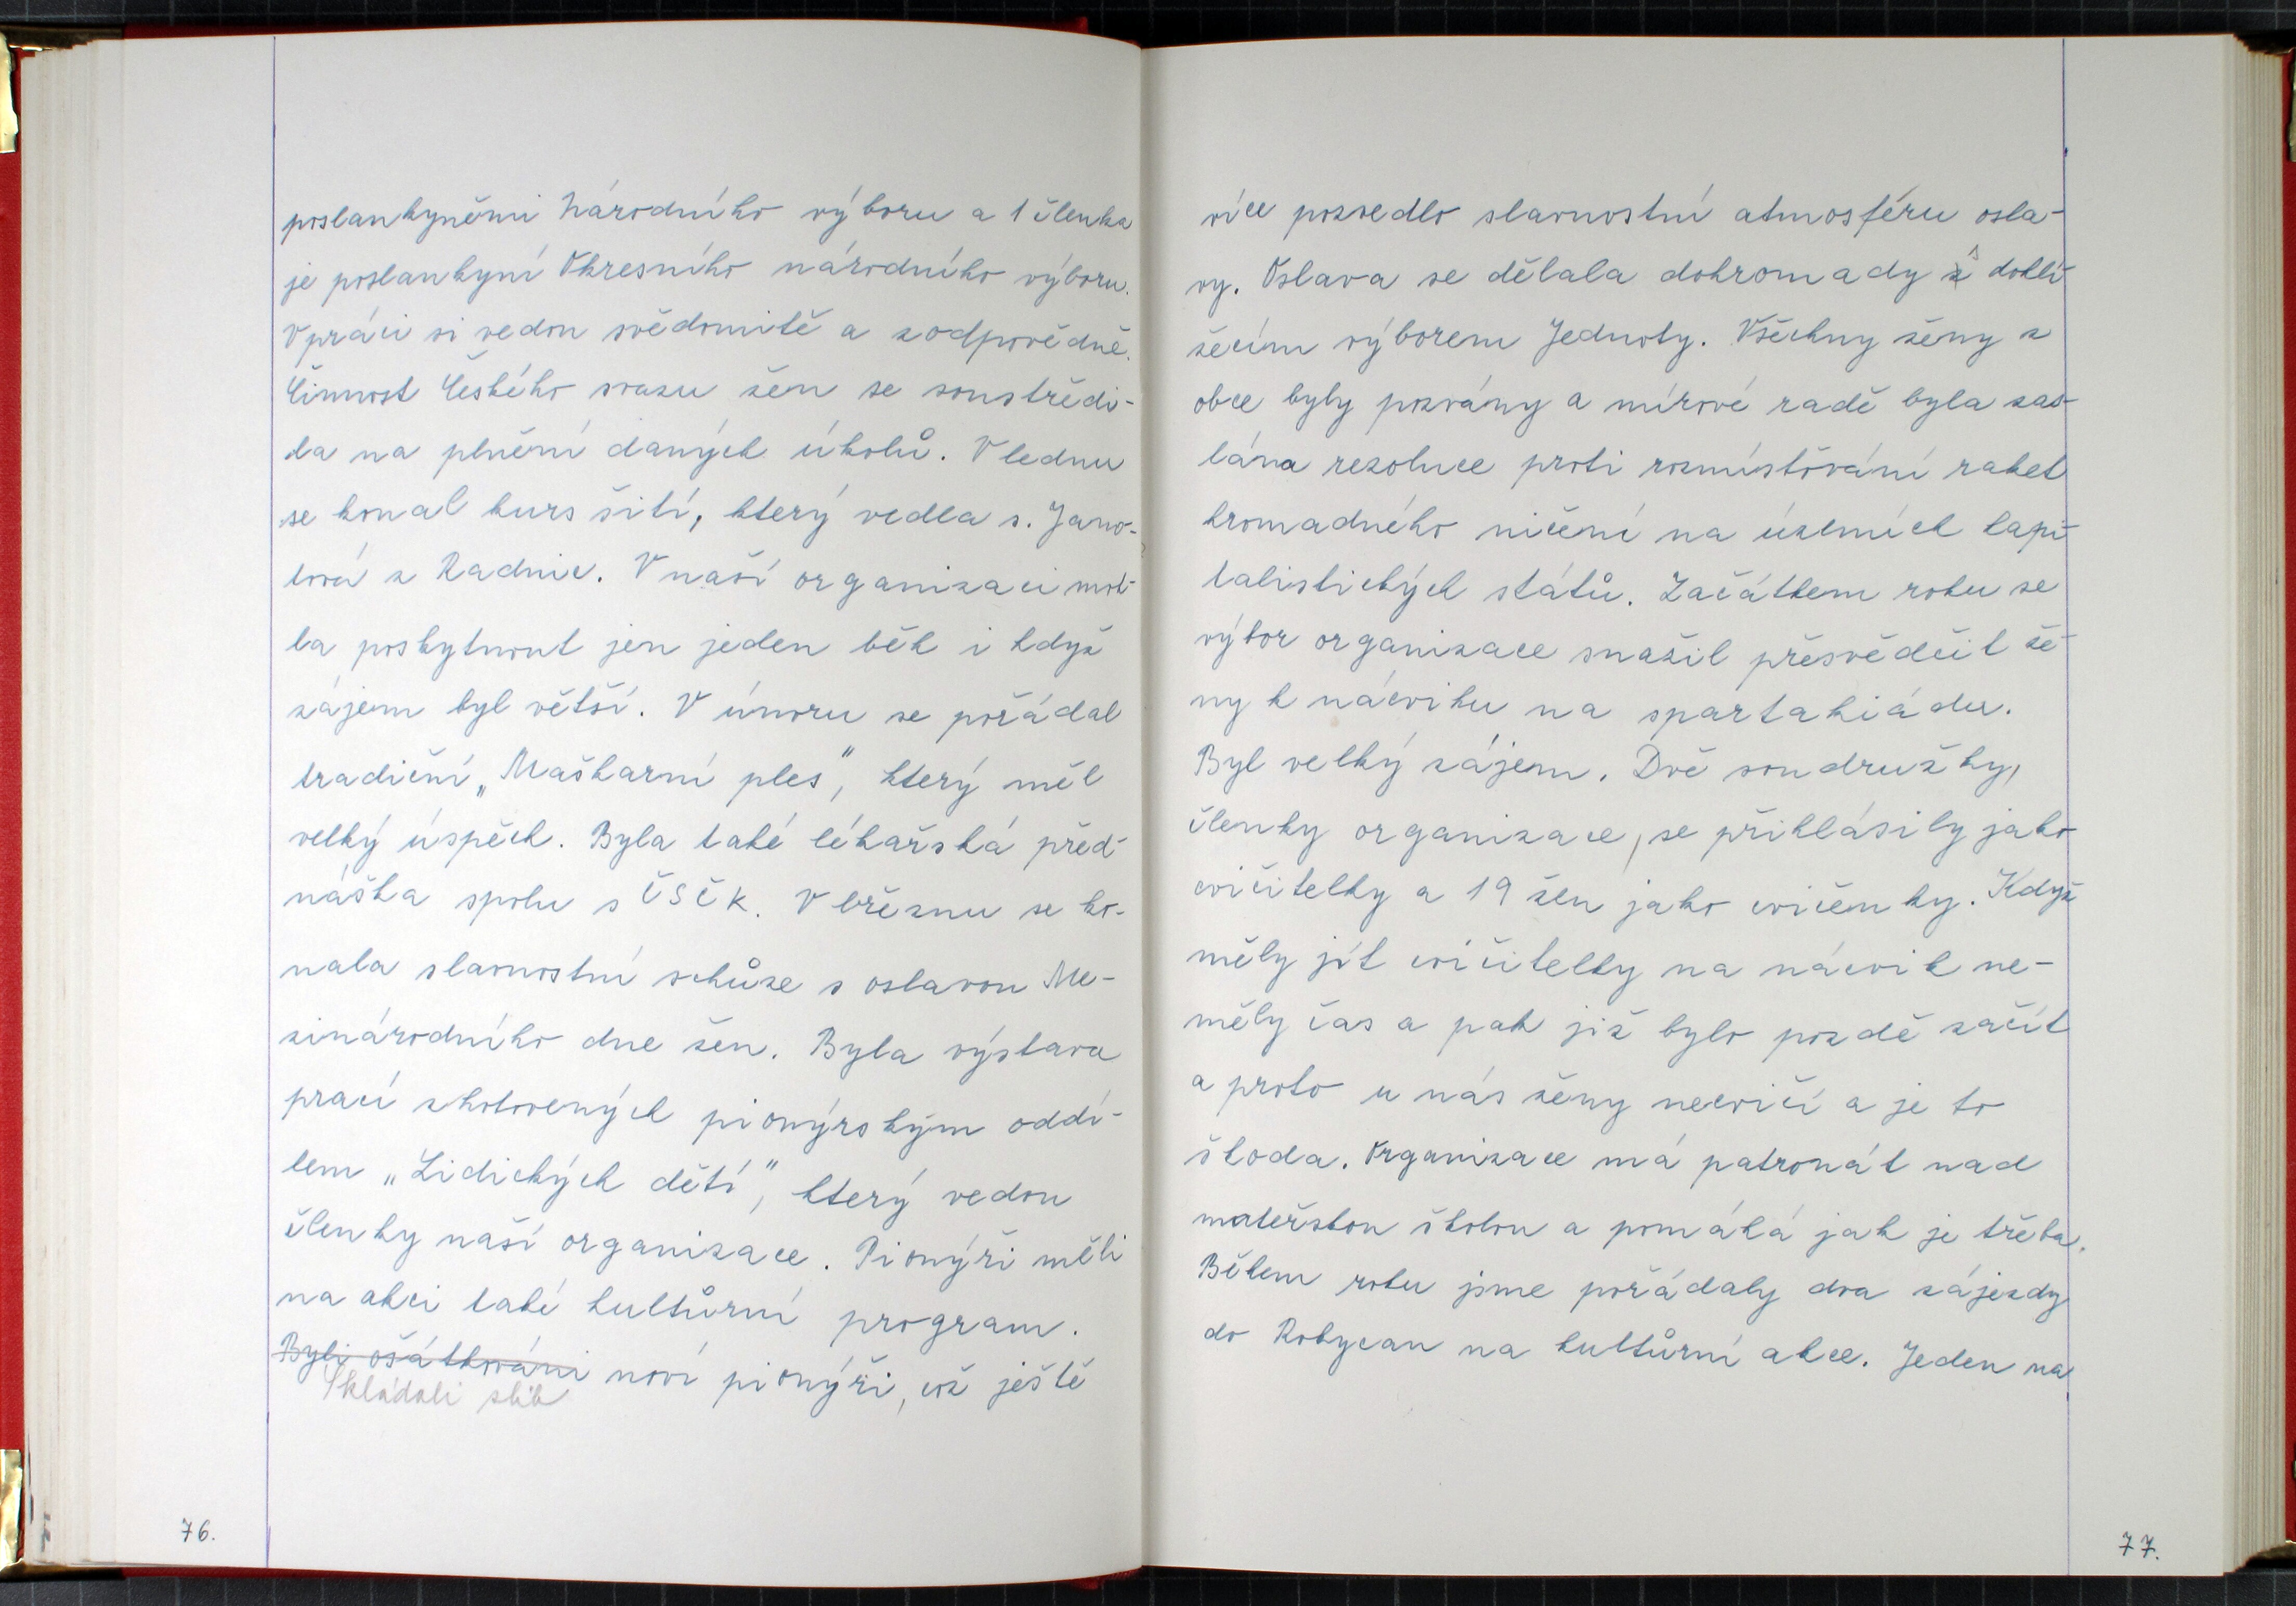 poslankyněmi Národního výboru a 1 členka
je poslankyní Okresního národního výboru.
V práci si vedou svědomitě a zodpovědně.
Činnost Českého svazu žen se soustředi-
la na plnění daných úkolů. V lednu
se konal kurs šití, který vedla s. Jano-
tová z Radnic. V naší organizaci moh-
la poskytnout jen jeden běh i když
zájem byl větší. V únoru se pořádal
tradiční „Maškarní ples", který měl
velký úspěch. Byla také lékařská před-
náška spolu s ČSČK. V březnu se ko-
nala slavnostní schůze s oslavou Me-
zinárodního dne žen. Byla výstava
prací zhotovených pionýrským oddí-
lem „Lidických dětí", který vedou
členky naší organizace. Pionýři měli
na akci také kultůrní program.
Byli ošátkováni noví pionýři, což ještě
Skládali slib
76.
více pozvedlo slavnostní atmosféru osla-
vy. Oslava se dělala dohromady s dohlí-
žecím výborem Jednoty. Všechny ženy z
obce byly pozvány a mírové radě byla zas-
lána rezoluce proti rozmísťování raket
hromadného ničení na územích kapi-
talistických států. Začátkem roku se
výbor organizace snažil přesvědčit že-
ny k nácviku na spartakiádu.
Byl velký zájem. Dvě soudružky,
členky organizace, se přihlásily jako
cvičitelky a 19 žen jako cvičenky. Když
měly jít cvičitelky na nácvik ne-
měly čas a pak již bylo pozdě začít
a proto u nás ženy necvičí a je to
škoda. Organizace má patronát nad
mateřskou školou a pomáhá jak je třeba.
Během roku jsme pořádaly dva zájezdy
do Rokycan na kultůrní akce. Jeden na
77.